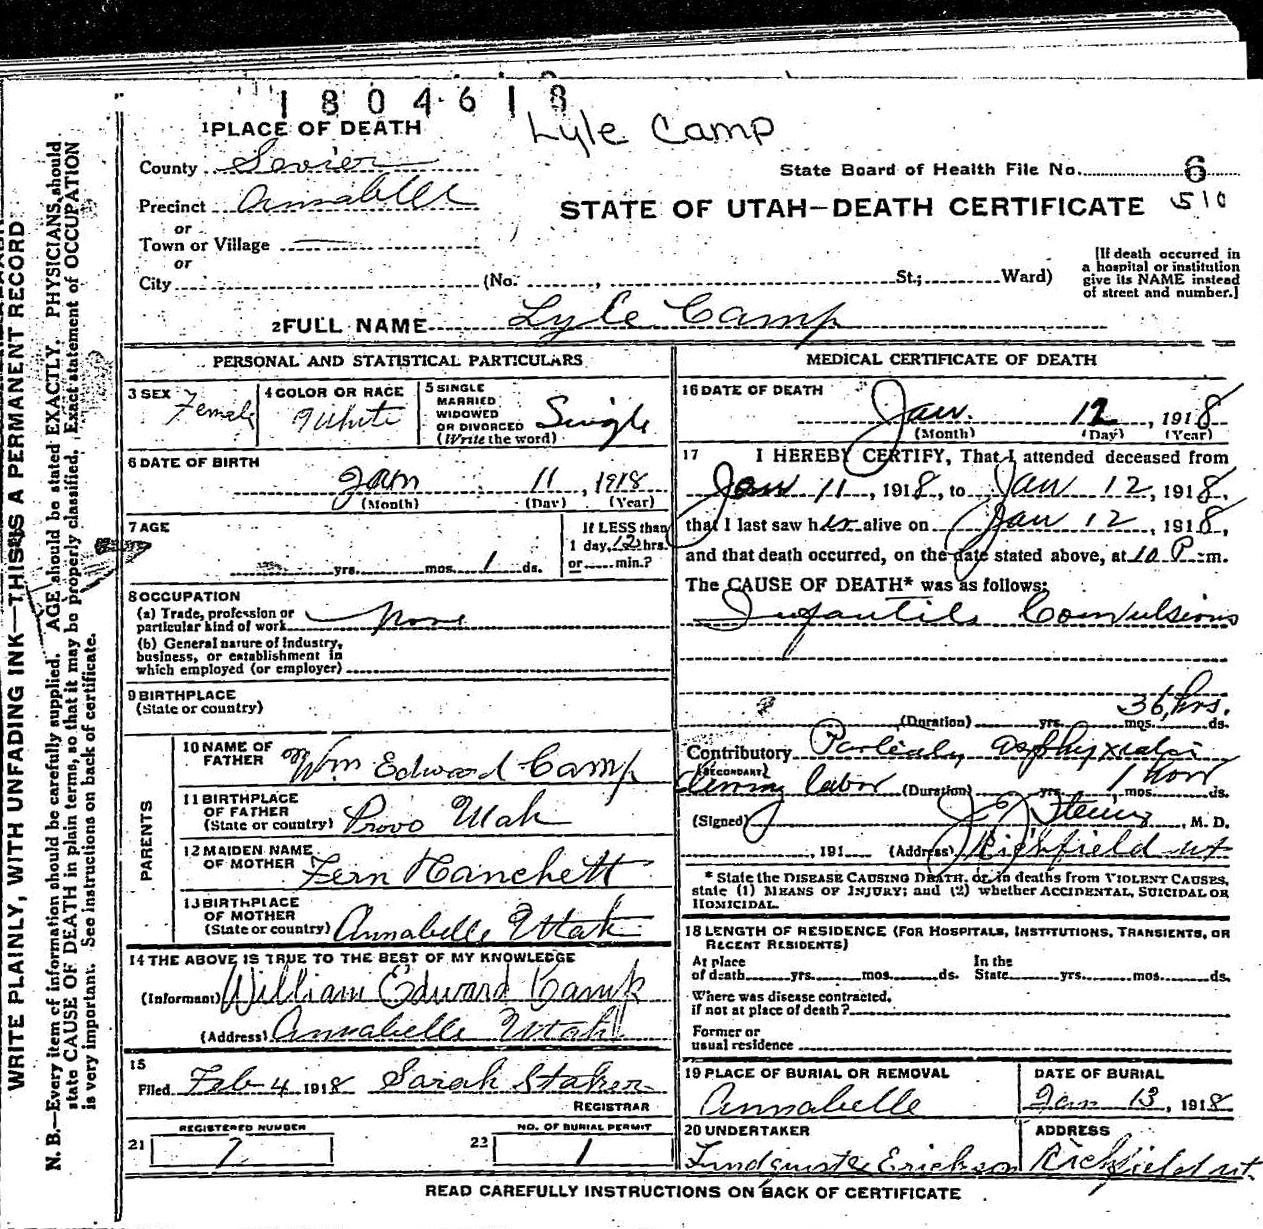 1804618
Lyle Camp
1 PLACE OF DEATH
County Sevier
State Board of Health File No. 6
Precinct Annabelle
STATE OF UTAH—DEATH CERTIFICATE 510
or
Town or Village
or
City (No. , St.; Ward)
[If death occurred in
a hospital or institution
give its NAME instead
of street and number.]
2 FULL NAME Lyle Camp
PERSONAL AND STATISTICAL PARTICULARS
3 SEX Female
4 COLOR OR RACE White
5 SINGLE
MARRIED
WIDOWED
OR DIVORCED
(Write the word) Single
6 DATE OF BIRTH
Jan 11, 1918
(Month) (Day) (Year)
7 AGE
yrs. mos. 1 ds.
If LESS than
1 day, 12 hrs.
or min.?
8 OCCUPATION
(a) Trade, profession or
particular kind of work None
(b) General nature of industry,
business, or establishment in
which employed (or employer)
9 BIRTHPLACE
(State or country)
PARENTS
10 NAME OF
FATHER Wm Edward Camp
11 BIRTHPLACE
OF FATHER
(State or country) Provo Utah
12 MAIDEN NAME
OF MOTHER Fern Hanchett
13 BIRTHPLACE
OF MOTHER
(State or country) Annabelle Utah
14 THE ABOVE IS TRUE TO THE BEST OF MY KNOWLEDGE
(Informant) William Edward Camp
(Address) Annabelle Utah
15
Filed Feb 4 1918 Sarah Staker
REGISTRAR
REGISTERED NUMBER
21 7
NO. OF BURIAL PERMIT
22 1
MEDICAL CERTIFICATE OF DEATH
16 DATE OF DEATH
Jan. 12, 1918
(Month) (Day) (Year)
17 I HEREBY CERTIFY, That I attended deceased from
Jan 11, 1918, to Jan 12, 1918,
that I last saw her alive on Jan 12, 1918,
and that death occurred, on the date stated above, at 10 P.m.
The CAUSE OF DEATH* was as follows:
Infantile Convulsions
36 hrs.
(Duration) yrs. mos. ds.
Contributory Partialy asphyxiated
(SECONDARY)
during labor (Duration) yrs. 1 hour mos. ds.
(Signed) M. D.
, 191 (Address) Richfield ut
* State the DISEASE CAUSING DEATH, or, in deaths from VIOLENT CAUSES,
state (1) MEANS OF INJURY; and (2) whether ACCIDENTAL, SUICIDAL OR
HOMICIDAL.
18 LENGTH OF RESIDENCE (FOR HOSPITALS, INSTITUTIONS, TRANSIENTS, OR
RECENT RESIDENTS)
At place
of death yrs. mos. ds.
In the
State yrs. mos. ds.
Where was disease contracted,
if not at place of death?
Former or
usual residence
19 PLACE OF BURIAL OR REMOVAL
Annabelle
DATE OF BURIAL
Jan 13, 1918
20 UNDERTAKER
Erickson
ADDRESS
Richfield ut.
READ CAREFULLY INSTRUCTIONS ON BACK OF CERTIFICATE
WRITE PLAINLY, WITH UNFADING INK—THIS IS A PERMANENT RECORD
N. B.—Every item of information should be carefully supplied. AGE should be stated EXACTLY. PHYSICIANS should
state CAUSE OF DEATH in plain terms, so that it may be properly classified. Exact statement of OCCUPATION
is very important. See instructions on back of certificate.